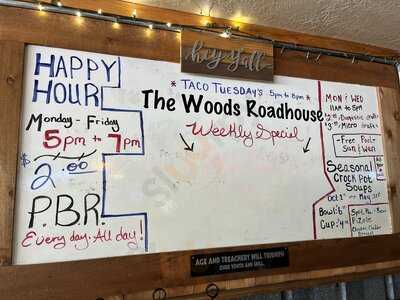 hey y'all
HAPPY
HOUR
Monday - Friday
5pm to 7pm
$2.00
P.B.R.
Every day, All day!
* TACO TUESDAY'S 5pm to 8pm *
The Woods Roadhouse
Weekly Special
MON & WED
11AM to 5pm
$2.00 Domestic drafts
$3.00 Micro drafts
- Free Pool -
Sun & Wed
Seasonal
Crock Pot
Soups
Oct 1st - May 31st
Bowl $6
Cup $4
AGE AND TREACHERY WILL TRIUMPH
OVER YOUTH AND SKILL